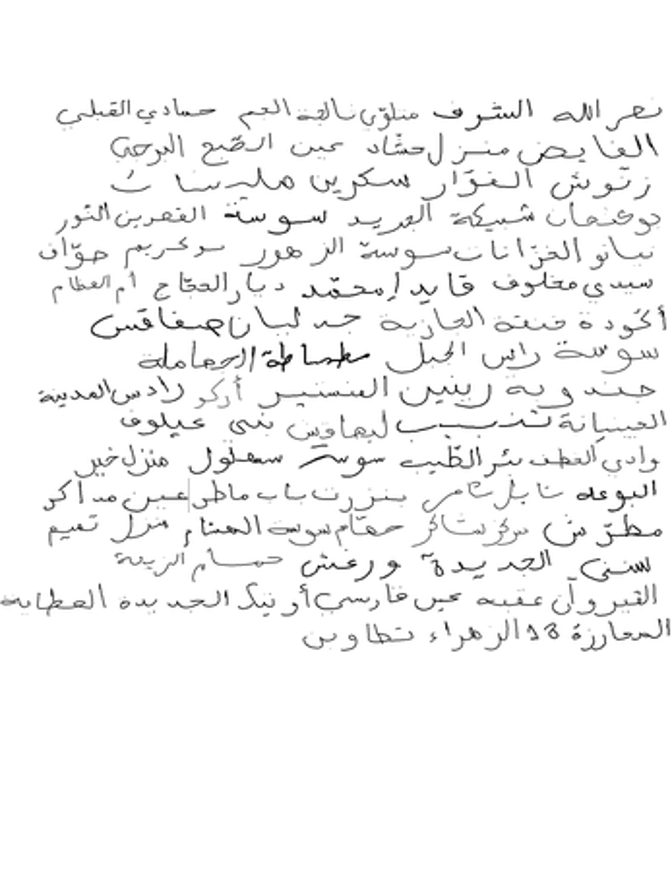 نصر الله الشرف منلوّي نالجة العم حمادي القبلي
الفايض منزل حشاد عين الضبع البرجي
زنّوش الفوّار سكرين
دوخنان شبيكة العريد سوسة القصرين النور
نباتو الخزّانات سوسة الزهور بوكريم صوّاف
سيدي مخلوف قايد إمحمّد ديار الحجاج أم العظام
أكودة خنقة الجازية جد لبان صفاقس
سوسة راس الجبل سطماطة الرحاملة
جندوبة رينين المنستير أركو رادس المدينة
العينانة تندبسب ليهاوس بني غيلوف
وادي العطف بئر الطّيب سوسة سهلول منزل خير
البوعة نابل ثامر بنزرت باب ماطر عين مذاكر
مطرّش مركز شاكر حمّام سوسة الهيشاء منزل تميم
سني الجديدة ورغش حمام الزيعة
القيروان عقبة عين فارسي أوتيك الجديدة الحطابة
المعارزة 18 الزهراء تطاوين